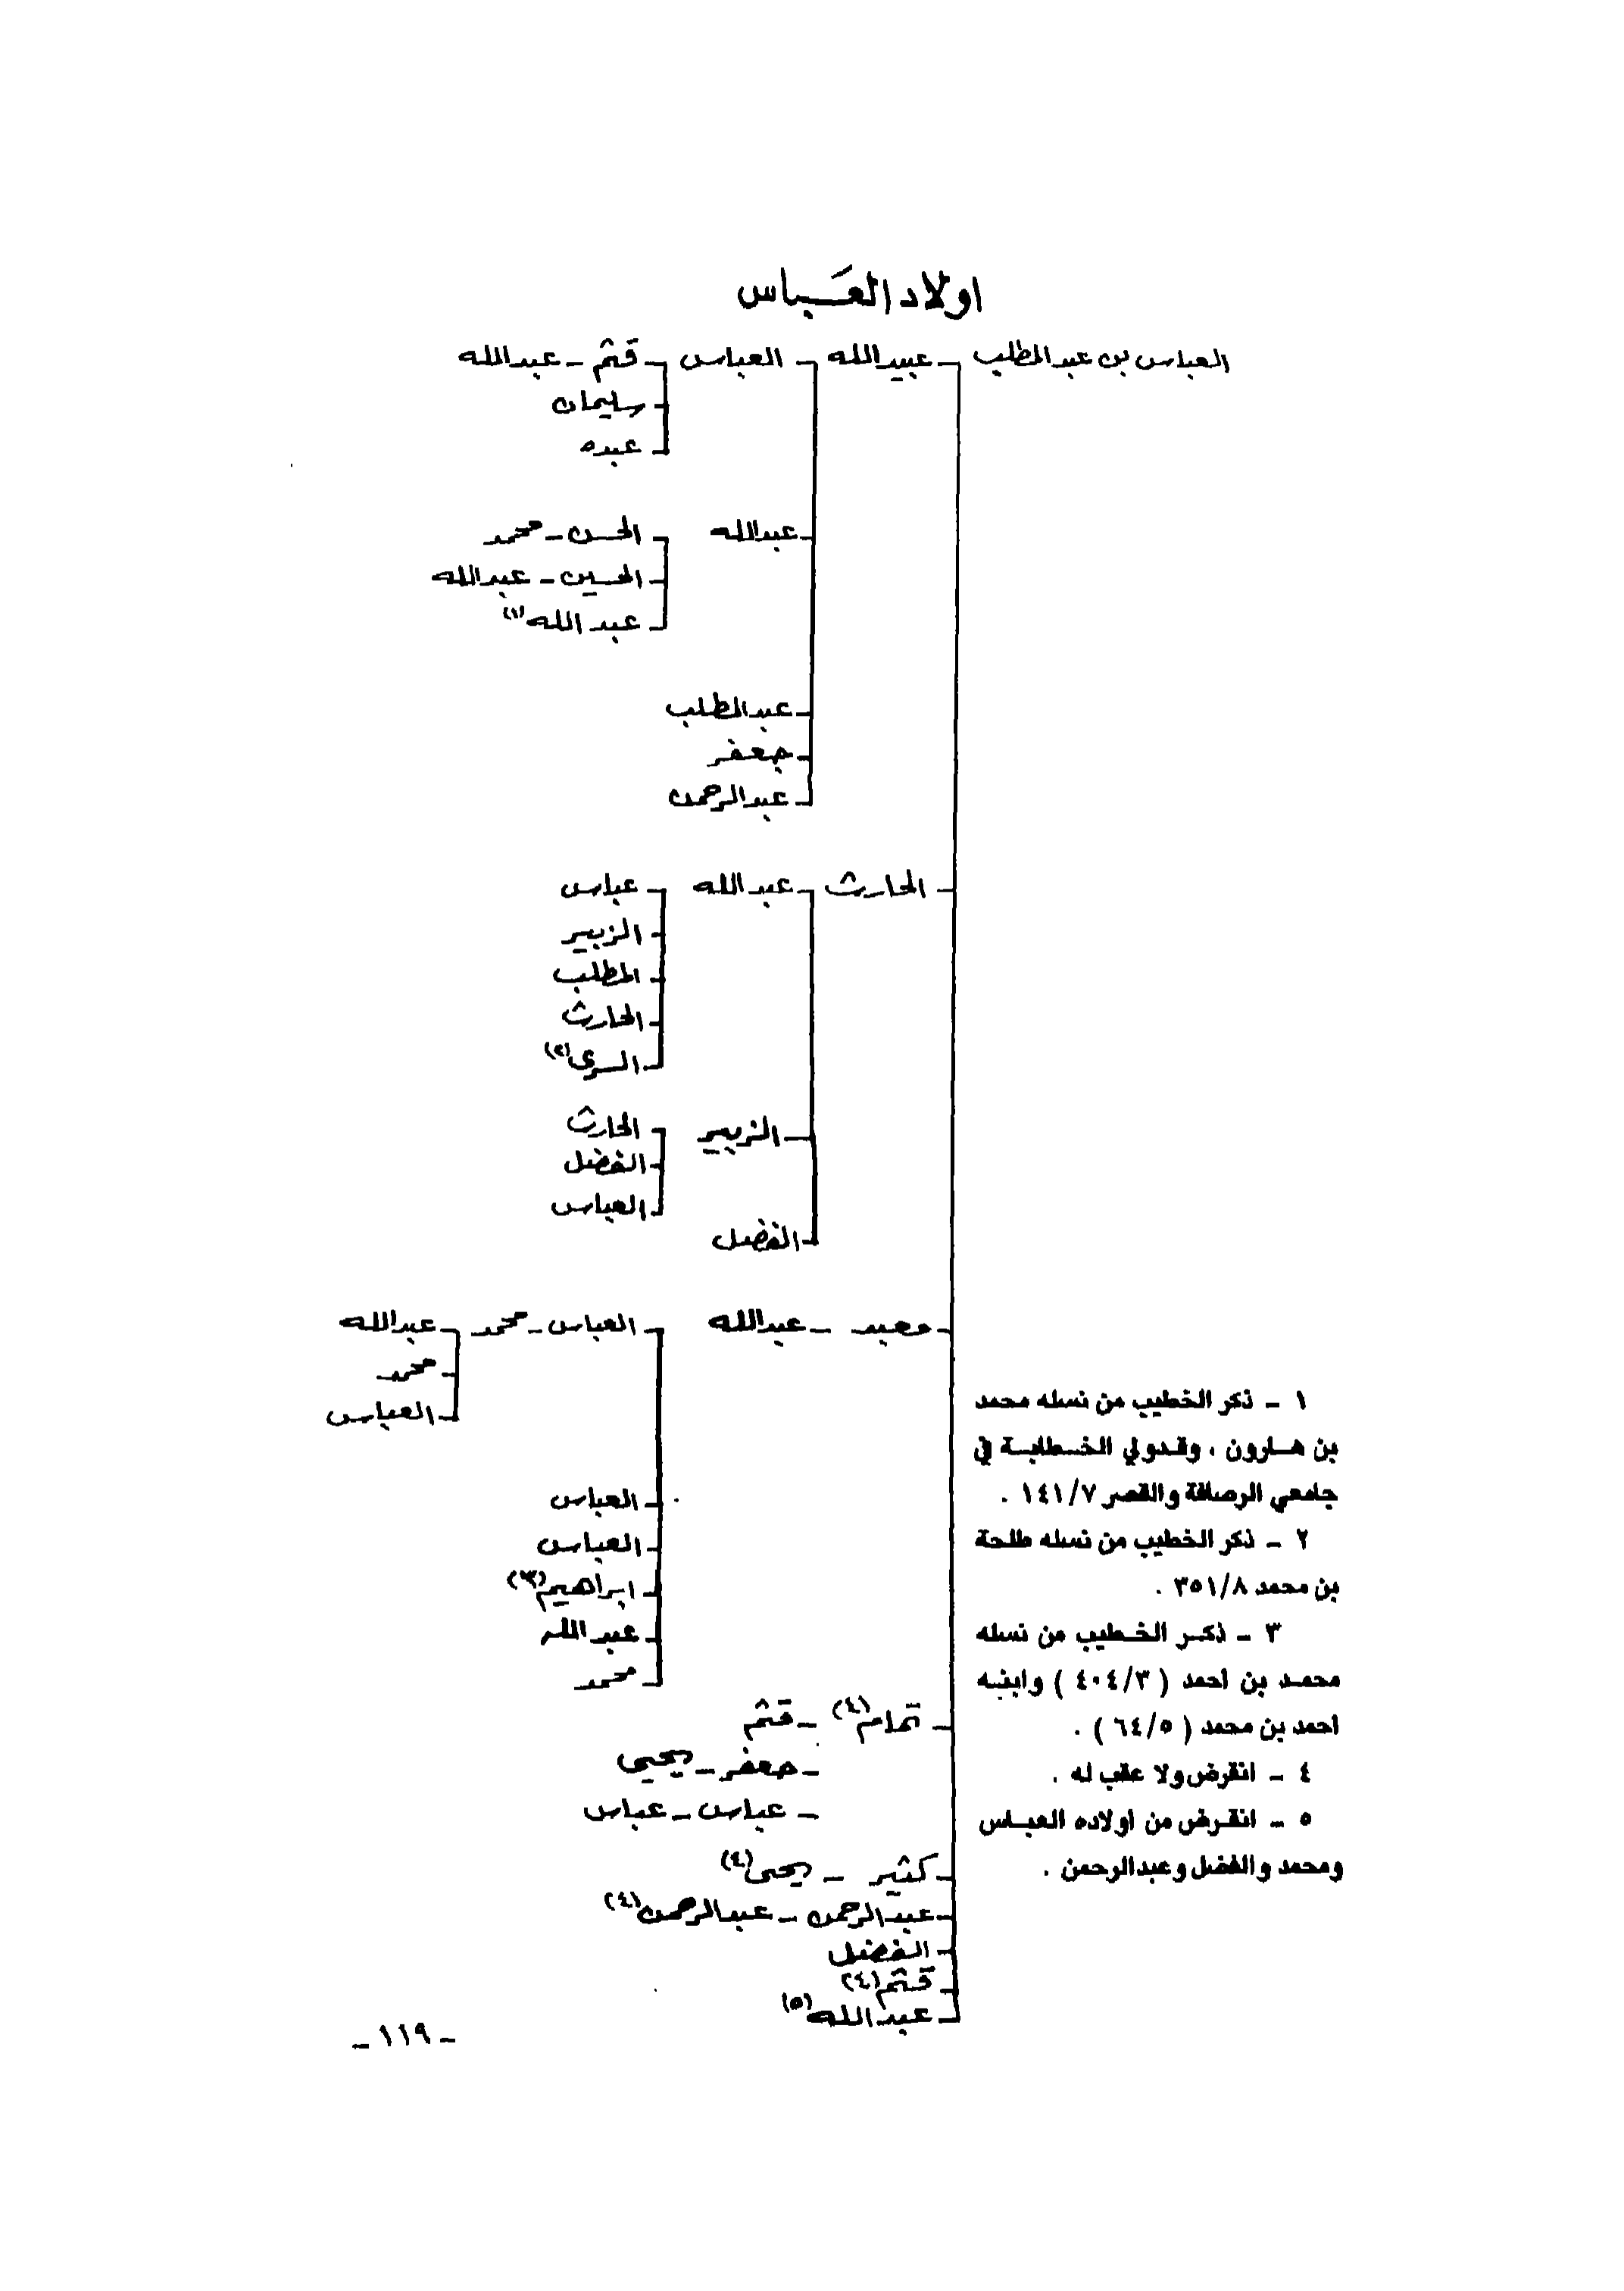 اولاد العَباس
العباس بن عبدالمطلب - عبيدالله - العباس - قثم - عبدالله
- سليمان
- عبده
- عبدالله - الحسن - محمد
- الحسين - عبدالله
- عبدالله (١)
- عبدالمطلب
- جعفر
- عبدالرحمن
- الحارث - عبدالله - عباس
- الزبير
- المطلب
- الحارث
- السري (٢)
- الزبير - الحارث
- الفضل
- العباس
- الفضل
- معبد - عبدالله - العباس - محمد - عبدالله
- محمد
- العباس
- العباس
- العباس
- ابراهيم (٣)
- عبدالله
- محمد
- تمام (٤) - قثم
- جعفر - يحيى
- عباس - عباس
- كثير - يحيى (٤)
- عبدالرحمن - عبدالرحمن (٤)
- الفضل
- قثم (٤)
- عبدالله (٥)
١ - ذكر الخطيب من نسله محمد
بن هارون ، وقدولي الخطابة في
جامعي الرصافة والقصر ١٤١/٧ .
٢ - ذكر الخطيب من نسله طلحة
بن محمد ٣٥١/٨ .
٣ - ذكر الخطيب من نسله
محمد بن احمد ( ٤٠٤/٣ ) وابنه
احمد بن محمد ( ٦٤/٥ ) .
٤ - انقرض ولا عقب له .
٥ - انقرض من اولاده العباس
ومحمد والفضل وعبدالرحمن .
- ١١٩ -